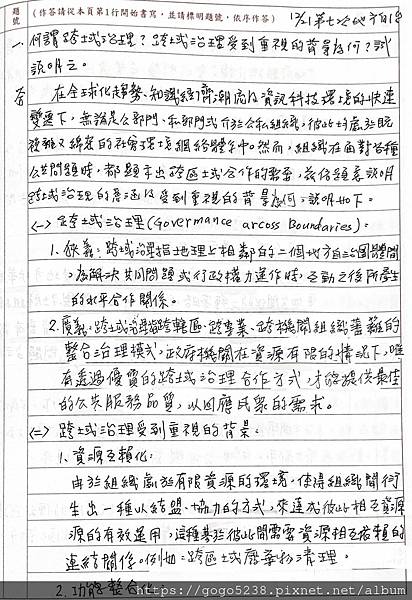 題號
（作答請從本頁第1行開始書寫，並請標明題號，依序作答）
12/21 第七次地方自治
一、何謂跨域治理？跨域治理受到重視的背景為何？試
說明之。
答
在全球化趨勢、知識經濟潮流及資訊科技環境的快速
變遷下，無論是公部門、私部門或介於公私組織，彼此均處於既
複雜又綿密的社會環境網絡體系中。然而，組織在面對各種
公共問題時，都顯示出跨區域合作的需要，茲依題意說明
跨域治理的意涵及受到重視的背景為何，說明如下。
<一>跨域治理(Govermance arcoss Boundaries)：
1.狹義：跨域治理指地理上相鄰的二個地方自治團體間
，為解決共同問題或行政權力運作時，互動之後所產生
的水平合作關係。
2.廣義：跨域治理指跨轄區、跨專業、跨機關組織藩籬的
整合治理模式，政府機關在資源有限的情況下，唯
有透過優質的跨域治理合作方式，才能提供最佳
的公共服務品質，以回應民眾的需求。
<二>跨域治理受到重視的背景：
1.資源互賴化：
由於組織處於有限資源的環境，使得組織間衍
生出一種以結盟、協力的方式，來達成彼此相互資源
源的有效運用，這種基於彼此間需要資源相互依賴的
連結關係。例如：跨區域廢棄物清理。
2.功能整合化
https://gogo5238.pixnet.net/album